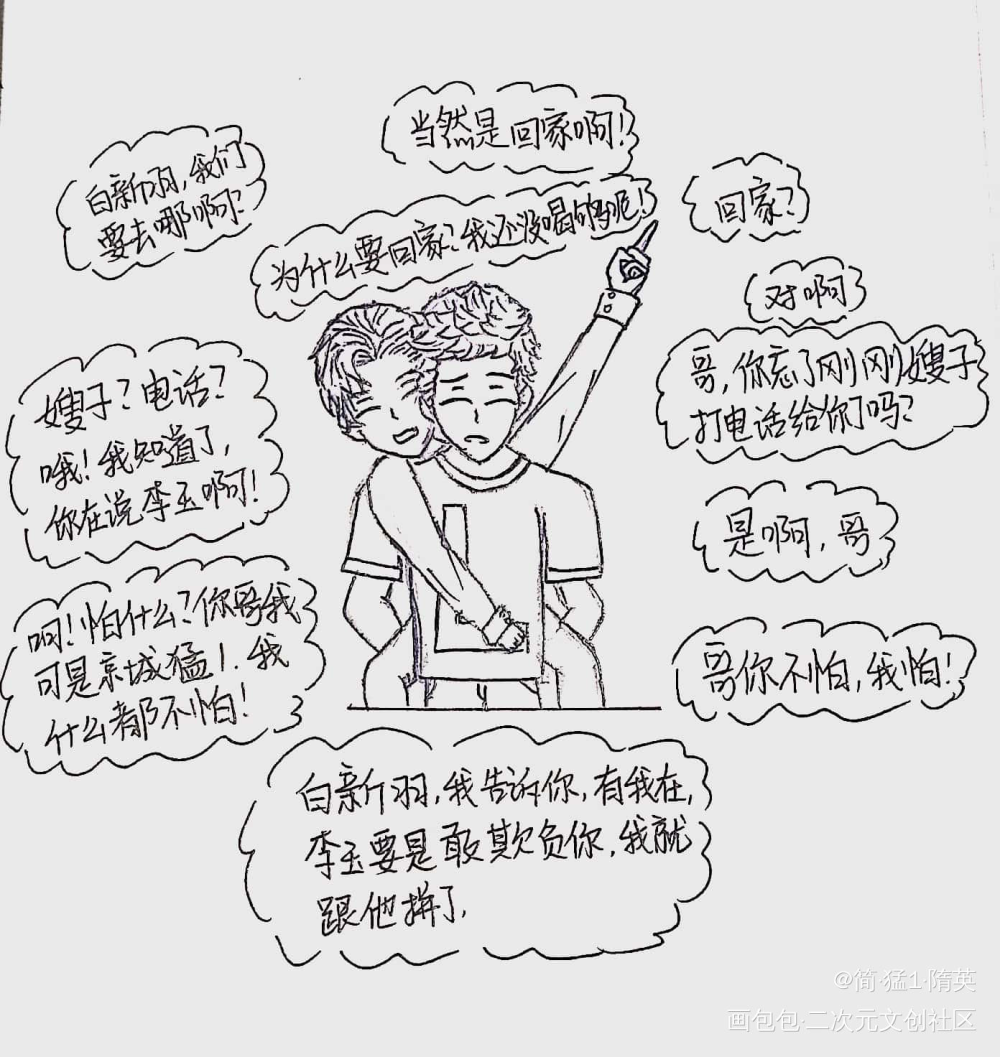 白新羽,我们
要去哪啊?
当然是回家啊!
为什么要回家?我还没喝够呢!
回家?
对啊
哥,你忘了刚刚嫂子
打电话给你了吗?
嫂子?电话?
哦!我知道了,
你在说李玉啊!
是啊,哥
啊!怕什么?你哥我
可是京城猛1.我
什么都不怕!
哥你不怕,我怕!
白新羽,我告诉你,有我在,
李玉要是敢欺负你,我就
跟他拼了,
@简·猛1·隋英
画包包·二次元文创社区